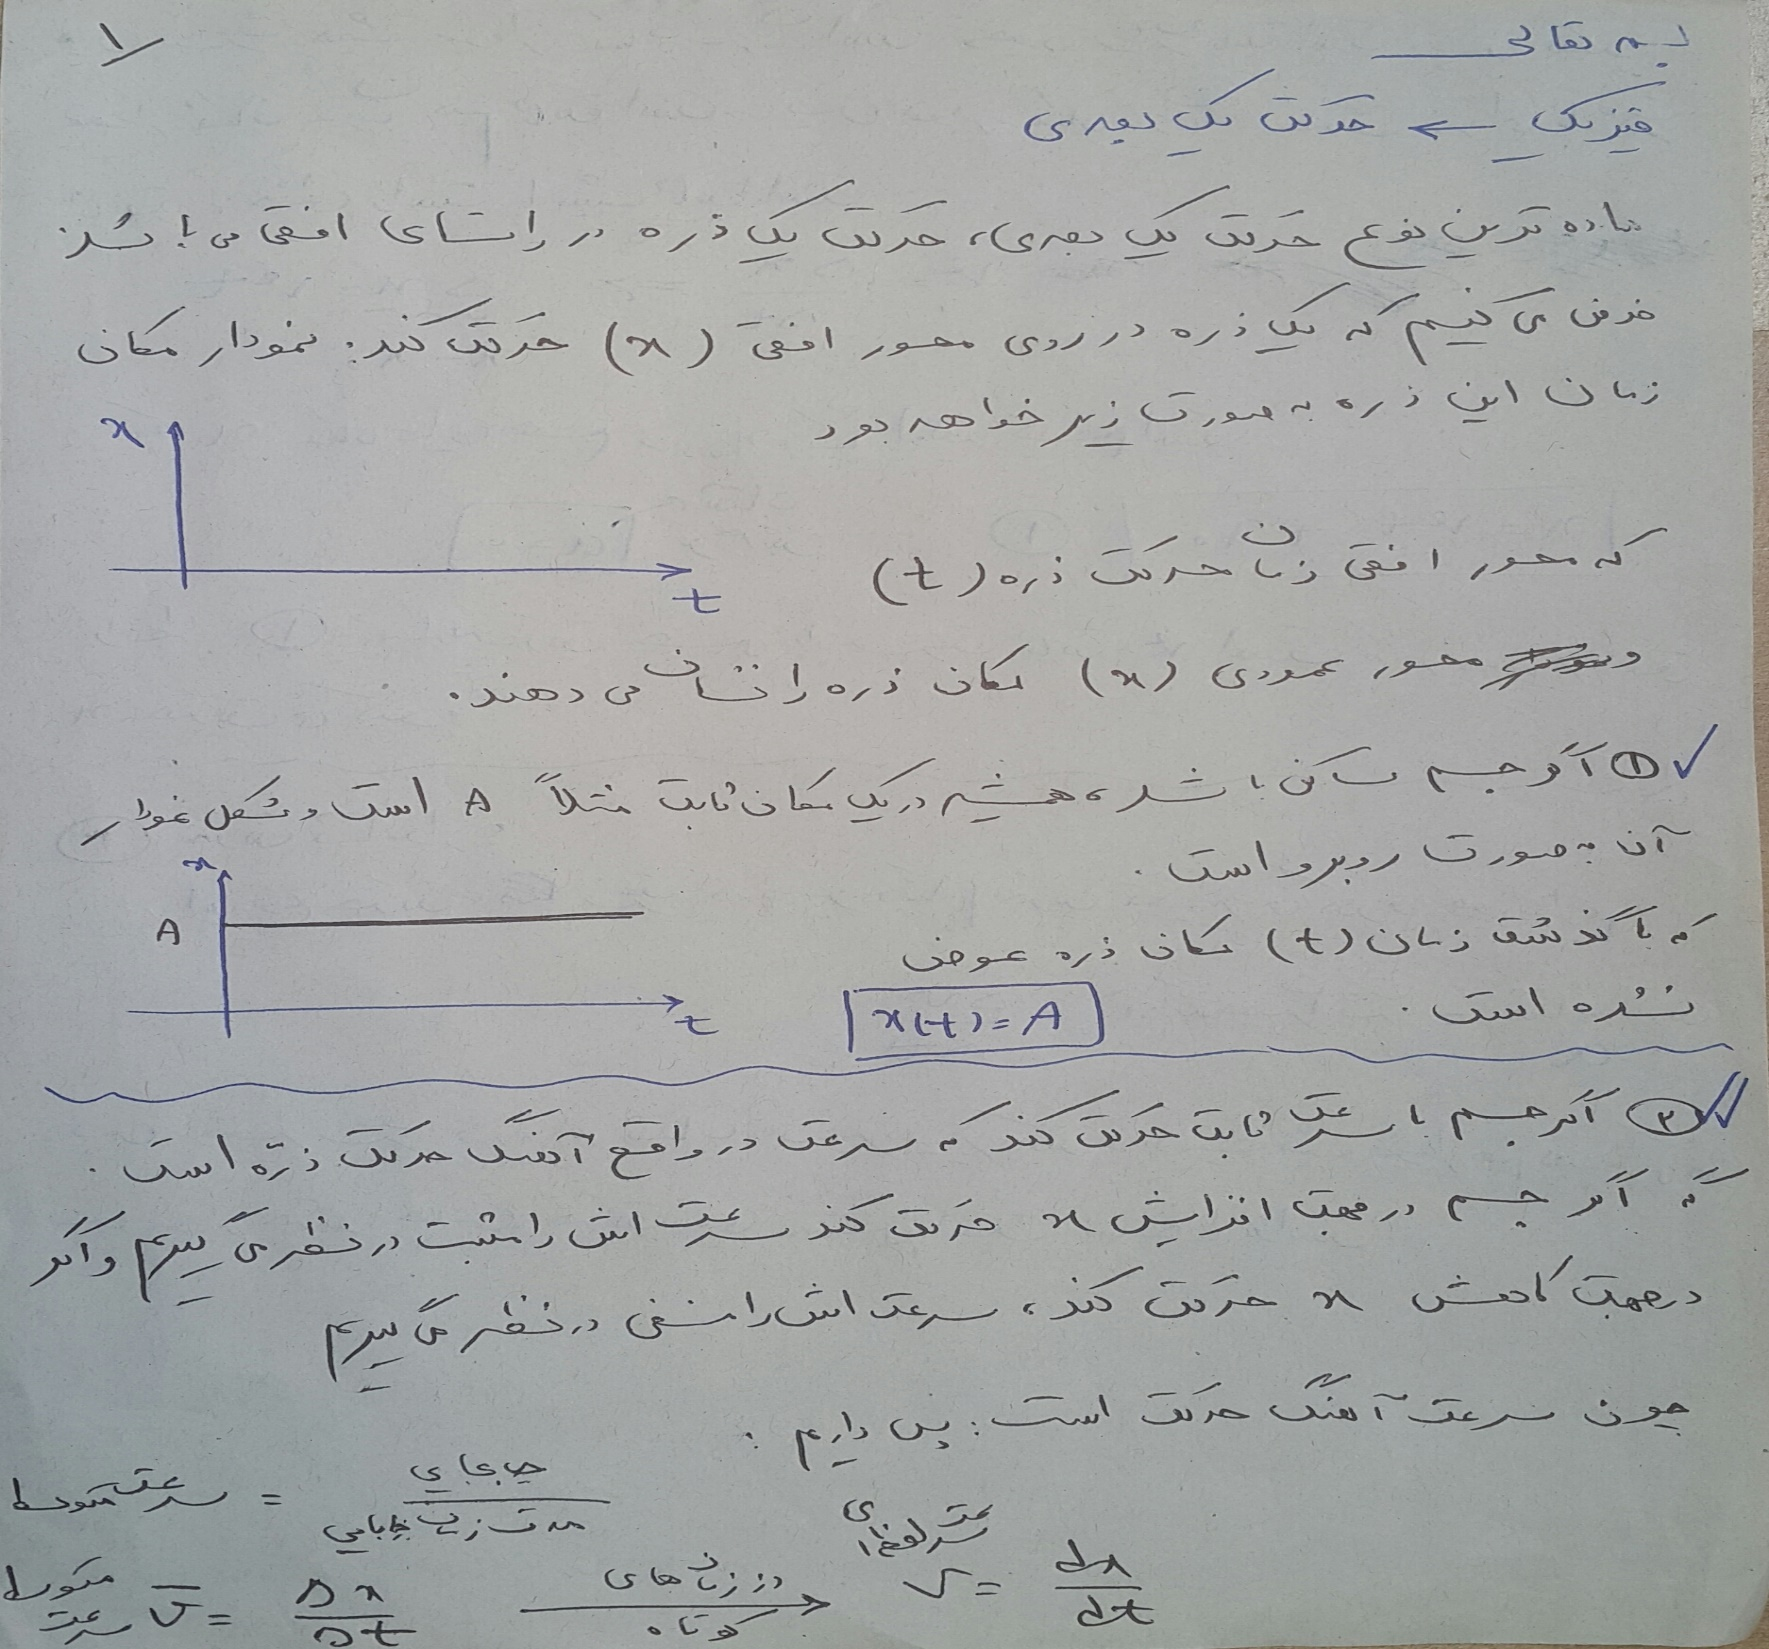 ۱
بسمه تعالی
فیزیک ← حرکت یک بعدی
ساده ترین نوع حرکت یک بعدی، حرکت یک ذره در راستای افقی می باشد
فرض می کنیم که یک ذره در روی محور افقی (x) حرکت کند. نمودار مکان
زمان این ذره به صورت زیر خواهد بود
x
t
که محور افقی زمان حرکت ذره (t)
و محور عمودی (x) مکان ذره را نشان می دهند.
✓ ① اگر جسم ساکن باشد، همیشه در یک مکان ثابت مثلاً A است و شکل نمودار
آن به صورت روبرو است.
x
A
t
که با گذشت زمان (t) مکان ذره عوض
نشده است.
x(t) = A
✓ ② اگر جسم با سرعت ثابت حرکت کند که سرعت در واقع آهنگ حرکت ذره است.
که اگر جسم در جهت افزایش x حرکت کند سرعت اش را مثبت در نظر می گیریم و اگر
در جهت کاهش x حرکت کند، سرعت اش را منفی در نظر می گیریم
چون سرعت آهنگ حرکت است: پس داریم:
سرعت متوسط = جابجایی / مدت زمان جابجایی
سرعت متوسط v̄ = Δx / Δt
در زمان های کوتاه →
سرعت لحظه ای
v = dx / dt